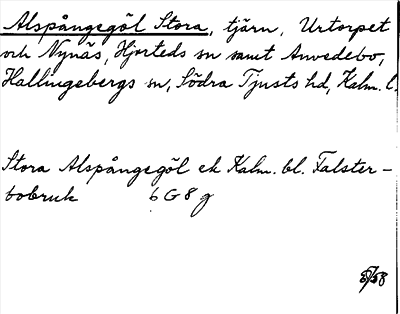 Alspångegöl Stora, tjärn, Urtorpet
och Nynäs, Hjorteds sn samt Anvedebo,
Hallingebergs sn, Södra Tjusts hd, Kalm. l.
Stora Alspångegöl ek Kalm. bl. Falster-
bobruk 6 G 8 g